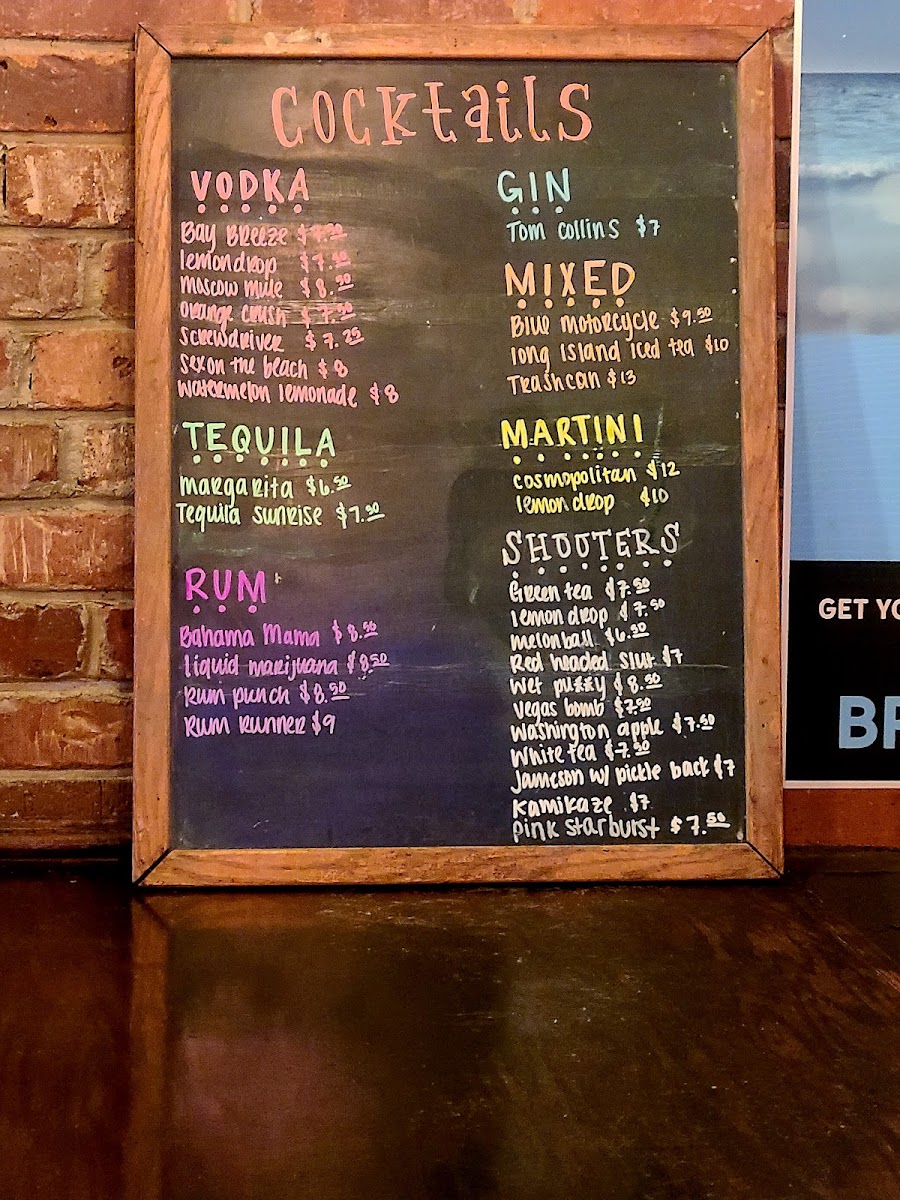 Cocktails
VODKA
Bay Breeze $7.50
lemondrop $7.50
moscow mule $8.50
orange crush $7.50
screwdriver $7.25
sex on the beach $8
watermelon lemonade $8
TEQUILA
margarita $6.50
Tequila sunrise $7.50
RUM
Bahama Mama $8.50
liquid marijuana $8.50
Rum punch $8.50
Rum Runner $9
GIN
Tom collins $7
MIXED
Blue motorcycle $9.50
long Island Iced tea $10
Trashcan $13
MARTINI
cosmopolitan $12
lemon drop $10
SHOOTERS
Green tea $7.50
lemon drop $7.50
melonball $6.50
Red headed slut $7
wet puzzy $8.50
Vegas bomb $7.50
Washington apple $7.50
White tea $7.50
Jameson w/ pickle back $7
Kamikaze $7
pink starburst $7.50
GET YO
BR